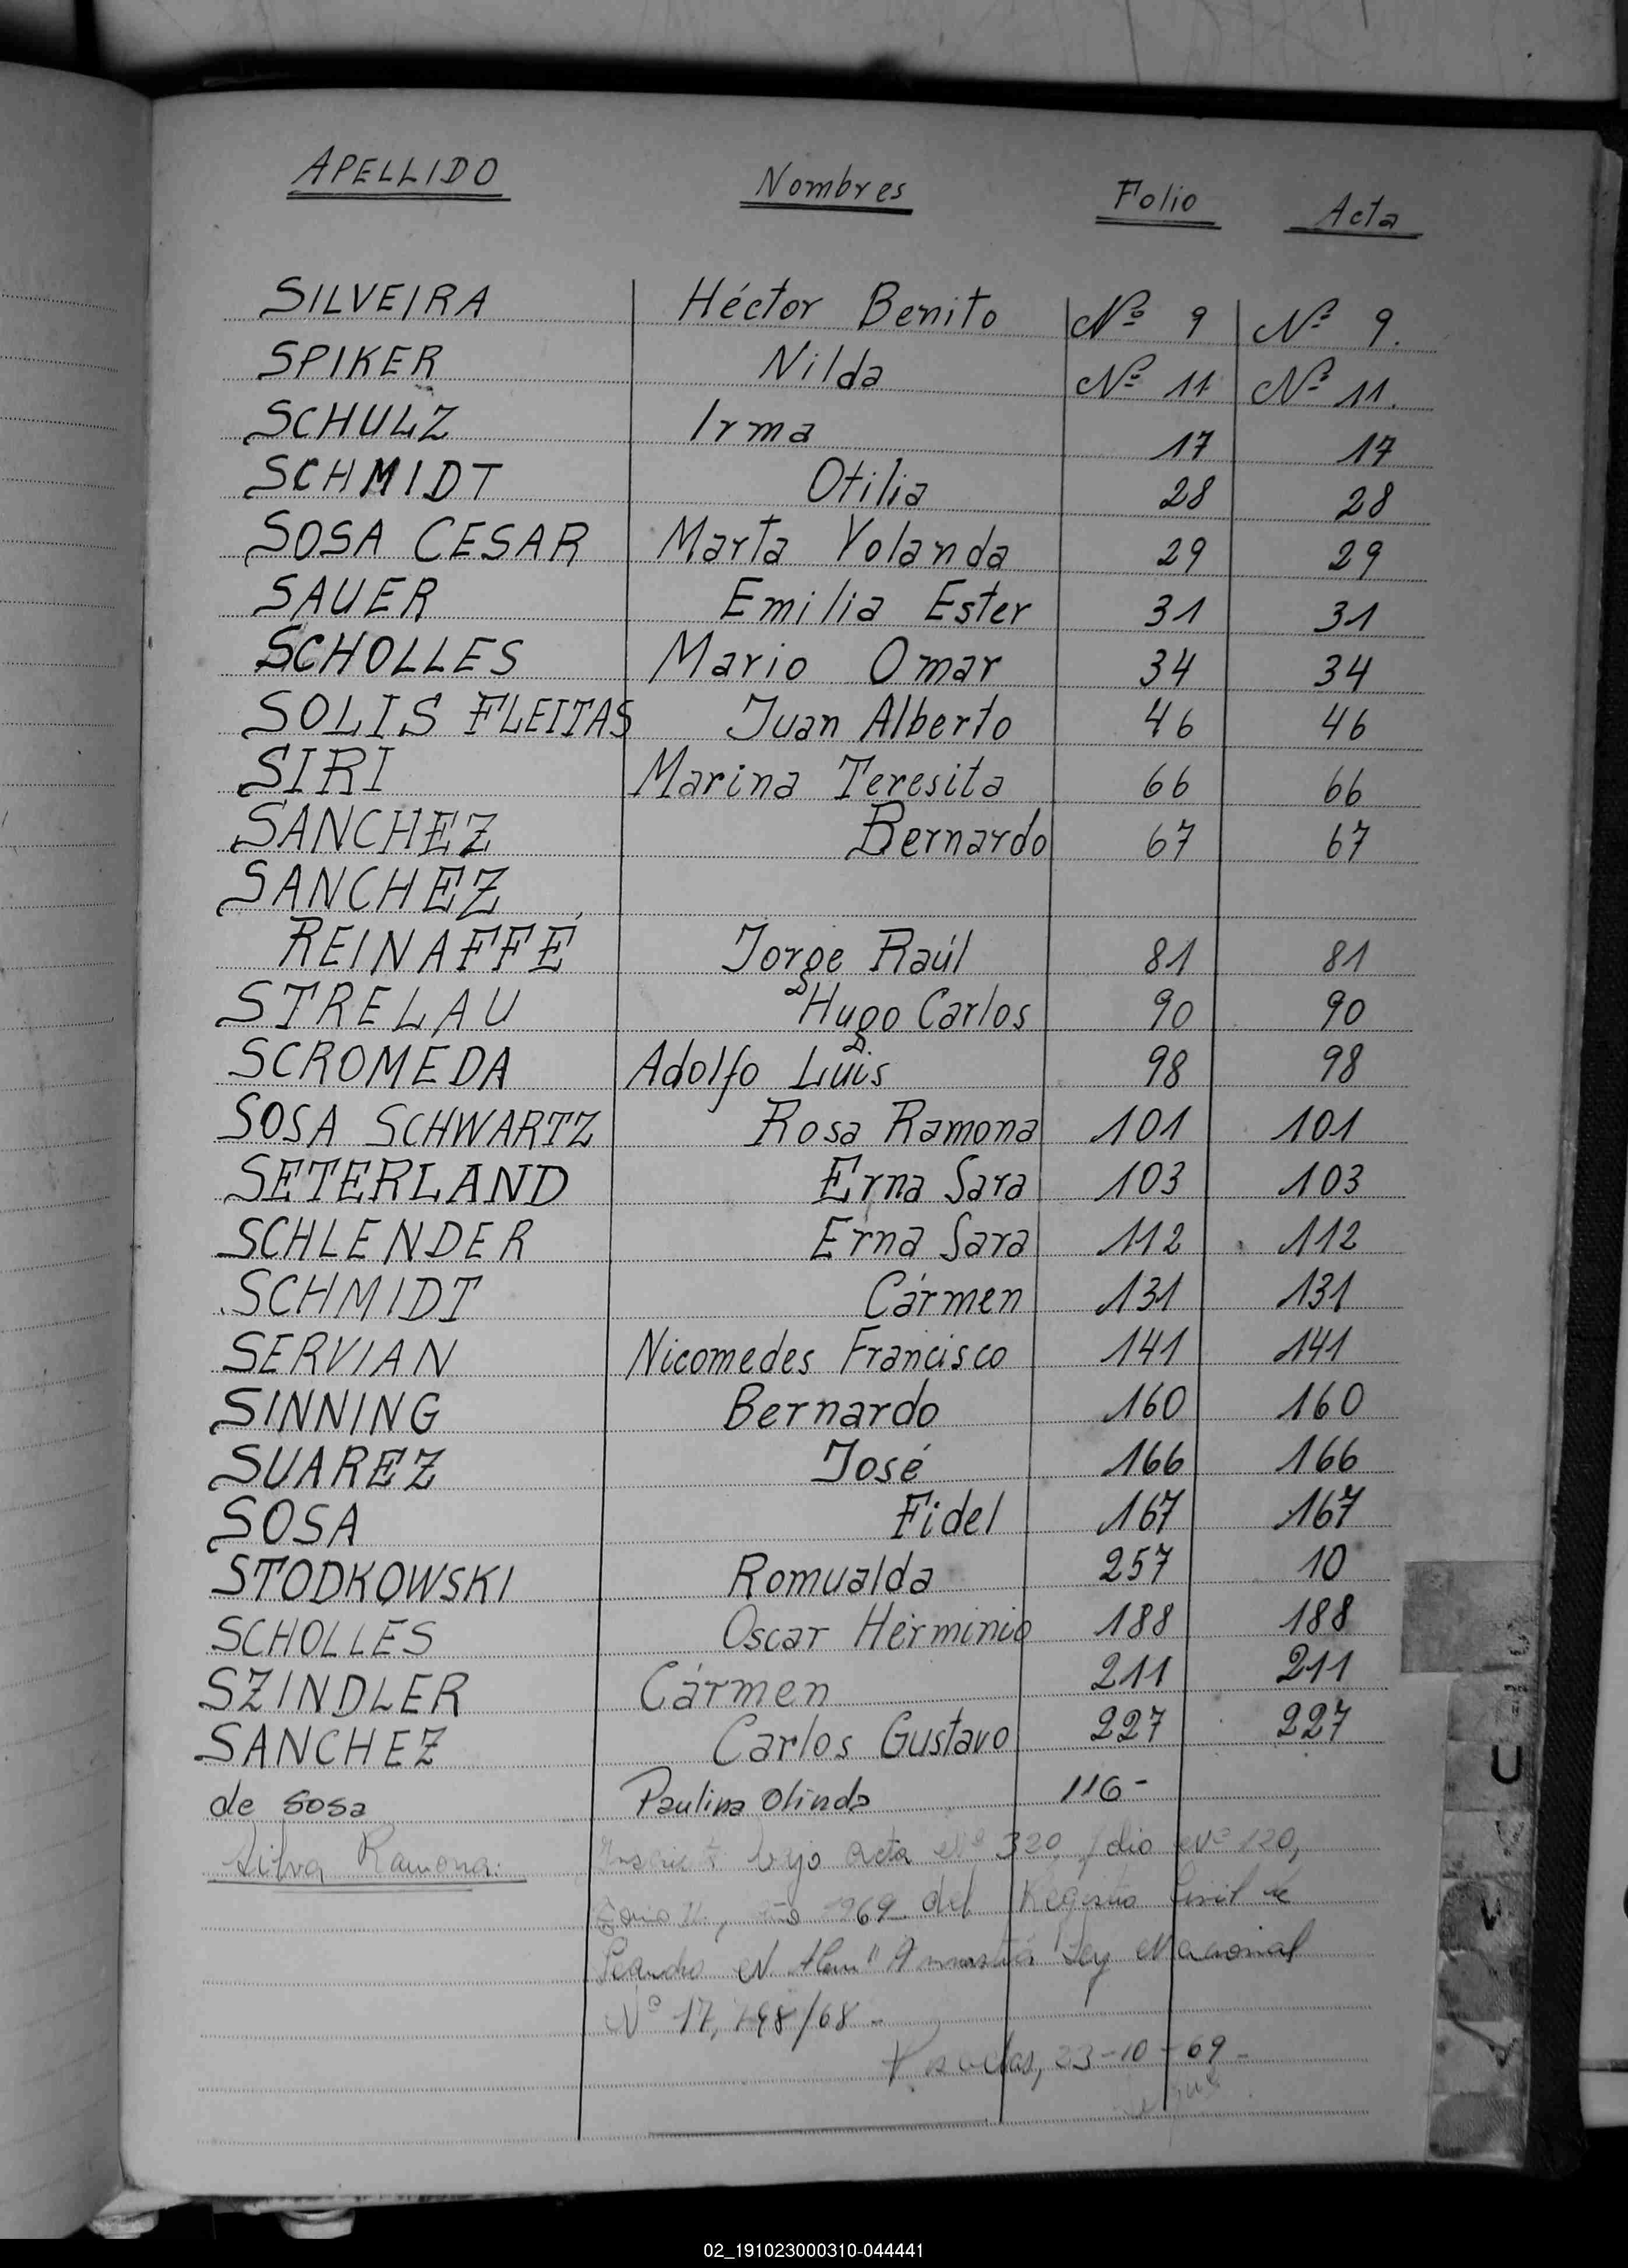 APELLIDO Nombres Folio Acta
SILVEIRA Héctor Benito Nº 9 Nº 9.
SPIKER Nilda Nº 11 Nº 11.
SCHULZ Irma 17 17
SCHMIDT Otilia 28 28
SOSA CESAR Marta Yolanda 29 29
SAUER Emilia Ester 31 31
SCHOLLES Mario Omar 34 34
SOLIS FLEITAS Juan Alberto 46 46
SIRI Marina Teresita 66 66
SANCHEZ Bernardo 67 67
SANCHEZ
REINAFFÉ Jorge Raúl 81 81
STRELAU Hugo Carlos 90 90
SCROMEDA Adolfo Luis 98 98
SOSA SCHWARTZ Rosa Ramona 101 101
SETERLAND Erna Sara 103 103
SCHLENDER Erna Sara 112 112
SCHMIDT Cármen 131 131
SERVIAN Nicomedes Francisco 141 141
SINNING Bernardo 160 160
SUAREZ José 166 166
SOSA Fidel 167 167
STODKOWSKI Romualda 257 10
SCHOLLES Oscar Herminio 188 188
SZINDLER Cármen 211 211
SANCHEZ Carlos Gustavo 227 227
de Sosa Paulina Olinda 116-
Silva Ramona: bajo acta Nº 320, folio Nº 120,
año 1969 del Registro Civil de
Leandro N. Alem "Amnistía Ley Nacional
Nº 17, /68 -
Posadas, 23-10-69-
U
V
02_191023000310-044441